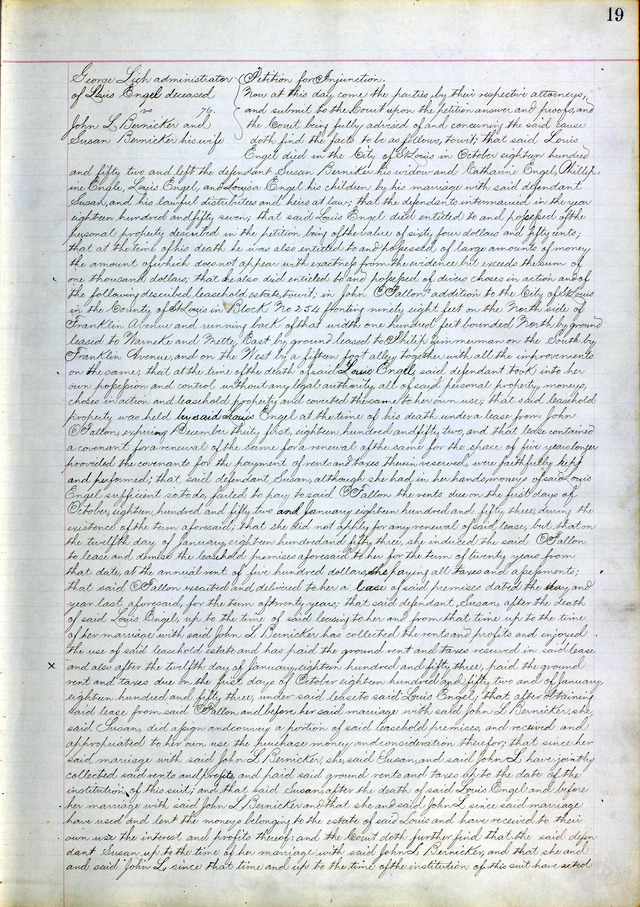 19
George Lich administrator
of Louis Engel deceased
vs 79.
John L Bernicker and
Susan Bernicker his wife
Petition for Injunction.
Now at this day come the parties, by their respective attorneys,
and submit to the Court upon the petition answer and proofs, and
the Court being fully advised of and concerning the said cause
doth find the facts to be as follows, towit; that said Louis
Engel died in the City of St Louis in October eighteen hundred
and fifty two and left the defendant Susan Berniker his widow and Catharine Engel, Phillip
ine Engle, Louis Engel, and Louisa Engel his children by his marriage with said defendant
Susan, and his lawful distributees and heirs at law; that the defendants intermarried in the year
eighteen hundred and fifty seven; that said Louis Engel died entitled to and possessed of the
personal property described in the petition, being of the value of sixty four dollars and fifty cents;
that at the time of his death he was also entitled to and possessed of large amounts of money,
the amount of which does not appear with exactness from the evidence but exceeds the sum of
one thousand dollars; that he also died entitled to and possessed of divers choses in action and of
the following described leasehold estate, towit; in John O'Fallon's addition to the City of St Louis
in the County of St Louis in Block No 234 fronting ninety eight feet on the North side of
Franklin Avenue and running back of that width one hundred feet bounded North by ground
leased to Warneke and Mette, East by ground leased to Philip Zimmerman on the South by
Franklin Avenue, and on the West by a fifteen foot alley, together with all the improvements
on the same; that at the time of the death of said Louis Engel, said defendant took into her
own possession and control without any legal authority all of said personal property, moneys,
choses in action and leasehold property, and coverted the same to her own use; that said leasehold
property was held by said Louis Engel at the time of his death under a lease from John
O'Fallon, expiring December thirty first, eighteen hundred and fifty two, and that lease contained
a covenant for a renewal of the same for a renewal of the same for the space of five years longer
provided the covenants for the payment of rents and taxes therein reserved, were faithfully kept
and performed; that said defendant Susan, although she had in her hands, moneys of said Louis
Engel sufficient so to do, failed to pay to said O'Fallon the rents due on the first days of
October, eighteen hundred and fifty two and January eighteen hundred and fifty three, during the
existence of the term aforesaid; that she did not apply for any renewal of said lease, but that on
the twelfth day of January, eighteen hundred and fifty three, she induced the said O'Fallon
to lease and demise the leasehold premises aforesaid to her for the term of twenty years from
that date, at the annual rent of five hundred dollars, she paying all taxes and assessments;
that said O'Fallon executed and delivered to her a lease of said premises dated the day and
year last aforesaid, for the term of twenty years; that said defendant, Susan, after the death
of said Louis Engel, up to the time of said leasing to her and from that time up to the time
of her marriage with said John L Bernicker has collected the rents and profits and enjoyed
the use of said leasehold estate and has paid the ground rent and taxes reserved in said lease
x and also after the twelfth day of January, eighteen hundred and fifty three, paid the ground
rent and taxes due on the first days of October eighteen hundred and fifty two and of January,
eighteen hundred and fifty three, under said lease to said Louis Engel; that after obtaining
said lease from said O'Fallon and before her said marriage with said John L Bernicker, she,
said Susan, did assign and convey a portion of said leasehold premises, and received and
appropriated to her own use the purchase money and consideration therefor; that since her
said marriage with said John L Bernicker, she, said Susan, and said John L. have jointly
collected said rents and profits, and paid said ground rents and taxes up to the date of the
institution of this suit; and that said Susan, after the death of said Louis Engel and before
her marriage with, said John L Bernicker and that she and said John L, since said marriage
have used and lent the money belonging to the estate of said Louis and have received to their
own use the interest and profits thereof: and the Court doth further find that the said defen
dant Susan up to the time of her marriage with said John L Bernicker, and that she and
and said John L, since that time and up to the time of the institution of this suit have acted